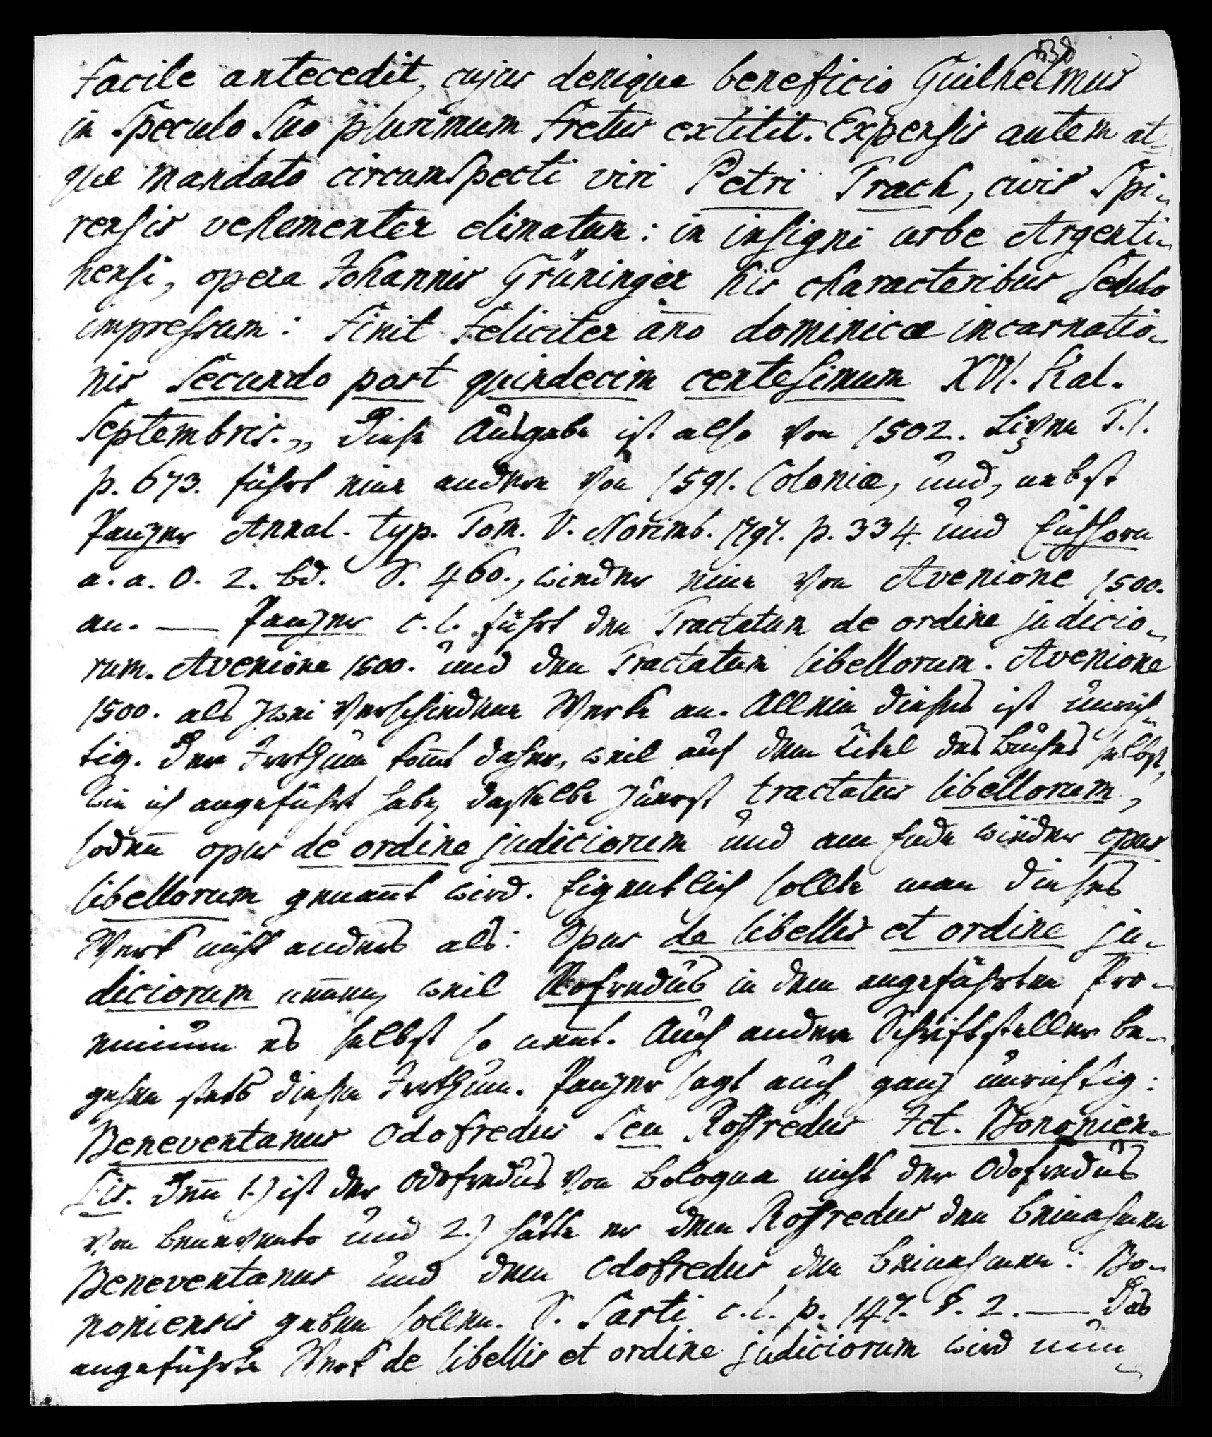 538
facile antecedit, cujus denique beneficio Guilhelmus
in Speculo Suo plurimum fretus extitit. Expensis autem at-
que mandato circumspecti viri Petri Trach, civis Spi-
rensis vehementer elimatum: in insigni urbe Argenti-
nensi, opera Johannis Grüninger his characteribus sedulo
impressum: finit feliciter año dominicæ incarnatio-
nis secundo post quindecim centesimum XVI. Kal.
Septembris.„ Diese Ausgabe ist also von 1502. T. I.
p. 673. führt eine andere von 1591. Coloniæ, und, nebst
Panzer Annal. typ. Tom. V. Norimb. 1797. p. 334 und Eichhorn
a. a. O. 2. bd. S. 460., wieder eine von Avenione 1500.
an. — Panzer c. l. führt den Tractatum de ordine judicio-
rum. Avenione 1500. und den Tractatum libellorum. Avenione
1500. als zwei verschiedene Werke an. Allein dieses ist unrich-
tig. Der Irrthum kom̄t daher, weil auf dem Titel des Buches selbst,
wie ich angeführt habe, dasselbe zuerst tractatus libellorum,
sodan̄ opus de ordine judiciorum und am Ende wieder opus
libellorum genan̄t wird. Eigentlich sollte man dieses
Werk nicht anders als: Opus de libellis et ordine ju-
diciorum nen̄en, weil Rofredus in dem angeführten Pro-
emium es selbst so nen̄t. Auch andere Schriftsteller be-
gehen stets diesen Irrthum. Panzer sagt auch ganz unrichtig:
Beneventanus Odofredus seu Roffredus Jct. Bononien-
sis. Den̄ 1.) ist der Odofredus von Bologna nicht der Odofredus
von Benevento und 2.) hätte er dem Roffredus den Beinahmen
Beneventanus und dem Odofredus den Beinahmen: Bo-
noniensis geben sollen. S. Sarti c. l. p. 147. §. 2. — Das
angeführte Werk de libellis et ordine judiciorum wird nun